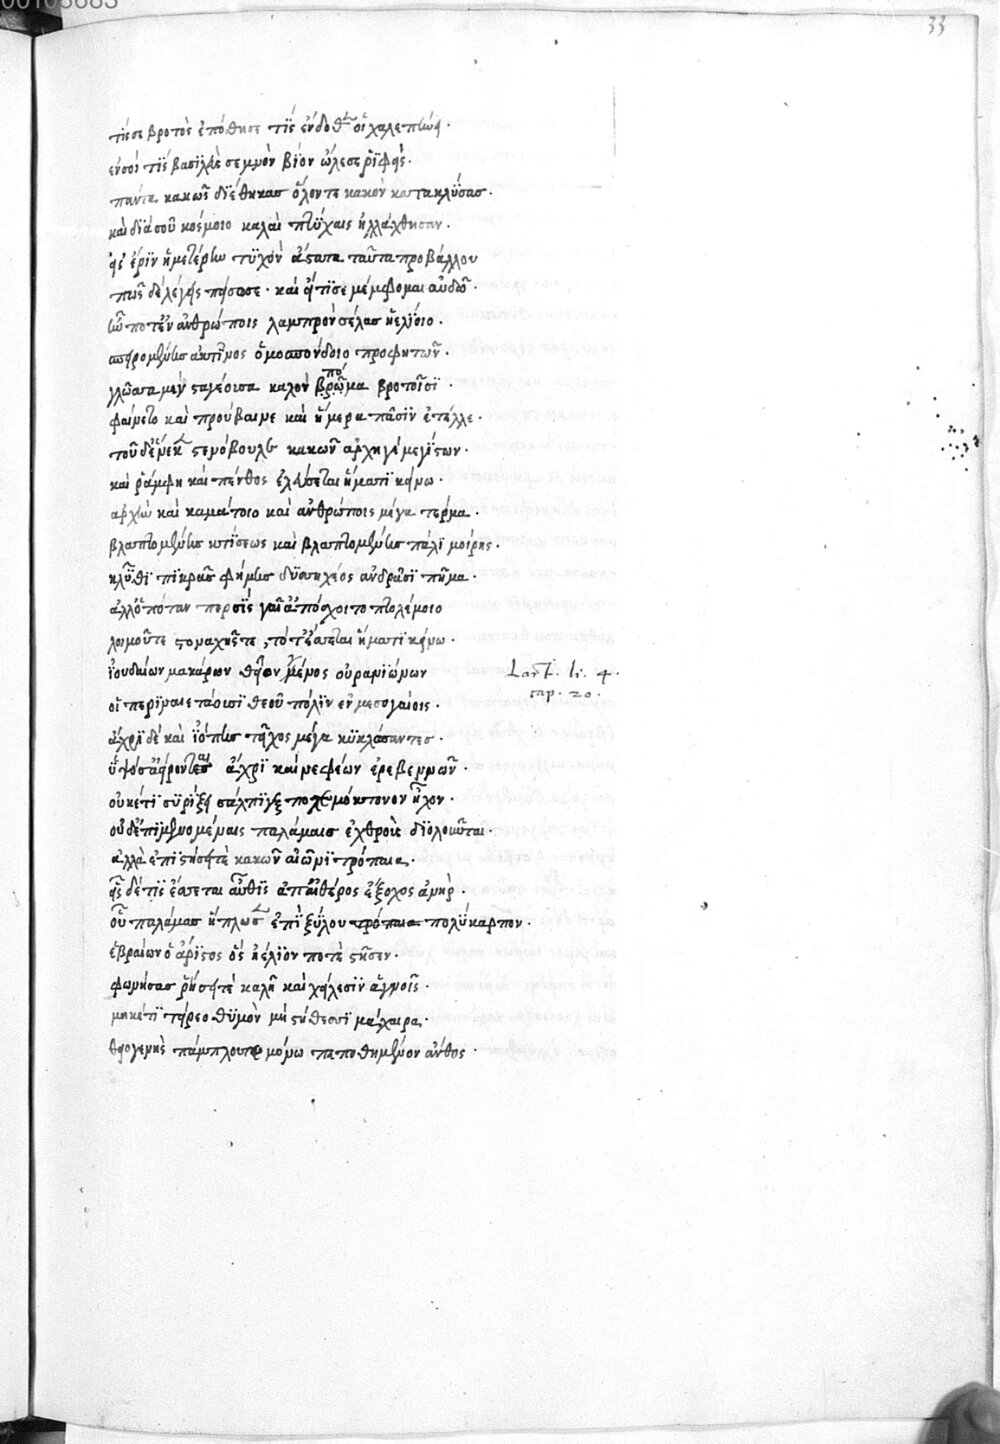 00103683
33
τίς σε βροτὸς ἐπόθησε τίς ἔνδοθεν οἷ χαλεπτών.
ἐν σοί τις βασιλεὺς σεμνὸν βίον ὤλεσε ῥιφείς.
πάντα κακῶς διέθηκας ὅλον τε κακὸν κατακλύσας.
καὶ διὰ σοῦ κόσμοιο καλαὶ πτύχαις ἠλλάχθησαν.
εἰς ἔριν ἡμετέρην τυχὸν ὕστατα ταῦτα προβάλλου
πῶς δὲ λέγεις πείσω σε. καὶ εἴ τί σε μέμφομαι αὐδῶ.
ὦ ποτ' ἐν ἀνθρώποις λαμπρὸν σέλας ἠελίοιο.
σπειρομένης ἀκτῖνος ὁμοσπόνδοιο προφητῶν.
γλῶσσα μὲν σταγέοισα καλὸν πό βρῶμα βροτοῖσι.
φαίνετο καὶ προύβαινε καὶ ἡμέρα πᾶσιν ἔτελλε.
τοῦδ' ἕνεκεν στενόβουλε κακῶν ἀρχηγὲ μεγίστων.
καὶ ῥάμφη καὶ πένθος ἐλεύσεται ἤματι κείνω.
ἀρχὴν καὶ καμάτοιο καὶ ἀνθρώποις μέγα τέρμα.
βλαπτομένης κτίσεως καὶ βλαπτομένης πάλι μοίρης.
κλῦθι πικρᾶς φήμης δυσηχέος ἀνδράσι πῆμα.
ἀλλ' ὁπόταν περσὶς γαῖ' ἀπόσχοιτο πτολέμοιο
λοιμοῦ τε στοναχῆς τε, τότ' ἔσσεται ἤματι κείνω.
ἰουδαίων μακάρων θεῖον γένος οὐρανιώνων
οἳ περιναιετάουσι θεοῦ πόλιν ἐν μεσογαίοις.
ἄχρι δὲ καὶ ἰόπης τεῖχος μέγα κυκλώσαντες.
ὑψόσ' ἀείροντες ἄχρι καὶ νεφέων ἐρεβεννῶν.
οὐκέτι συρίξει σάλπιγξ πολεμόκτονον ἦχον.
οὐδ' ἐπιμαινομέναις παλάμαις ἐχθροῖς διολοῦνται.
ἀλλὰ ἐπιστήσειτε κακῶν αἰῶνι τρόπαια.
εἷς δέ τις ἔσσεται αὖθις ἀπ' αἰθέρος ἔξοχος ἀνήρ.
οὗ παλάμας ἥπλωσεν ἐπὶ ξύλου τρόπαια πολύκαρπον.
ἑβραίων ὁ ἄριστος ὃς ἠέλιόν ποτε στῆσεν.
φωνήσας ῥήσει τε καλῆ καὶ χείλεσιν ἁγνοῖς.
μηκέτι τείρεο θυμὸν μὴ στήθεσσι μάχαιρα.
θειογενὴς πάμπλουτε μόνω πεποθημένον ἄνθος.
Lact. li. 4.
cap. 20.